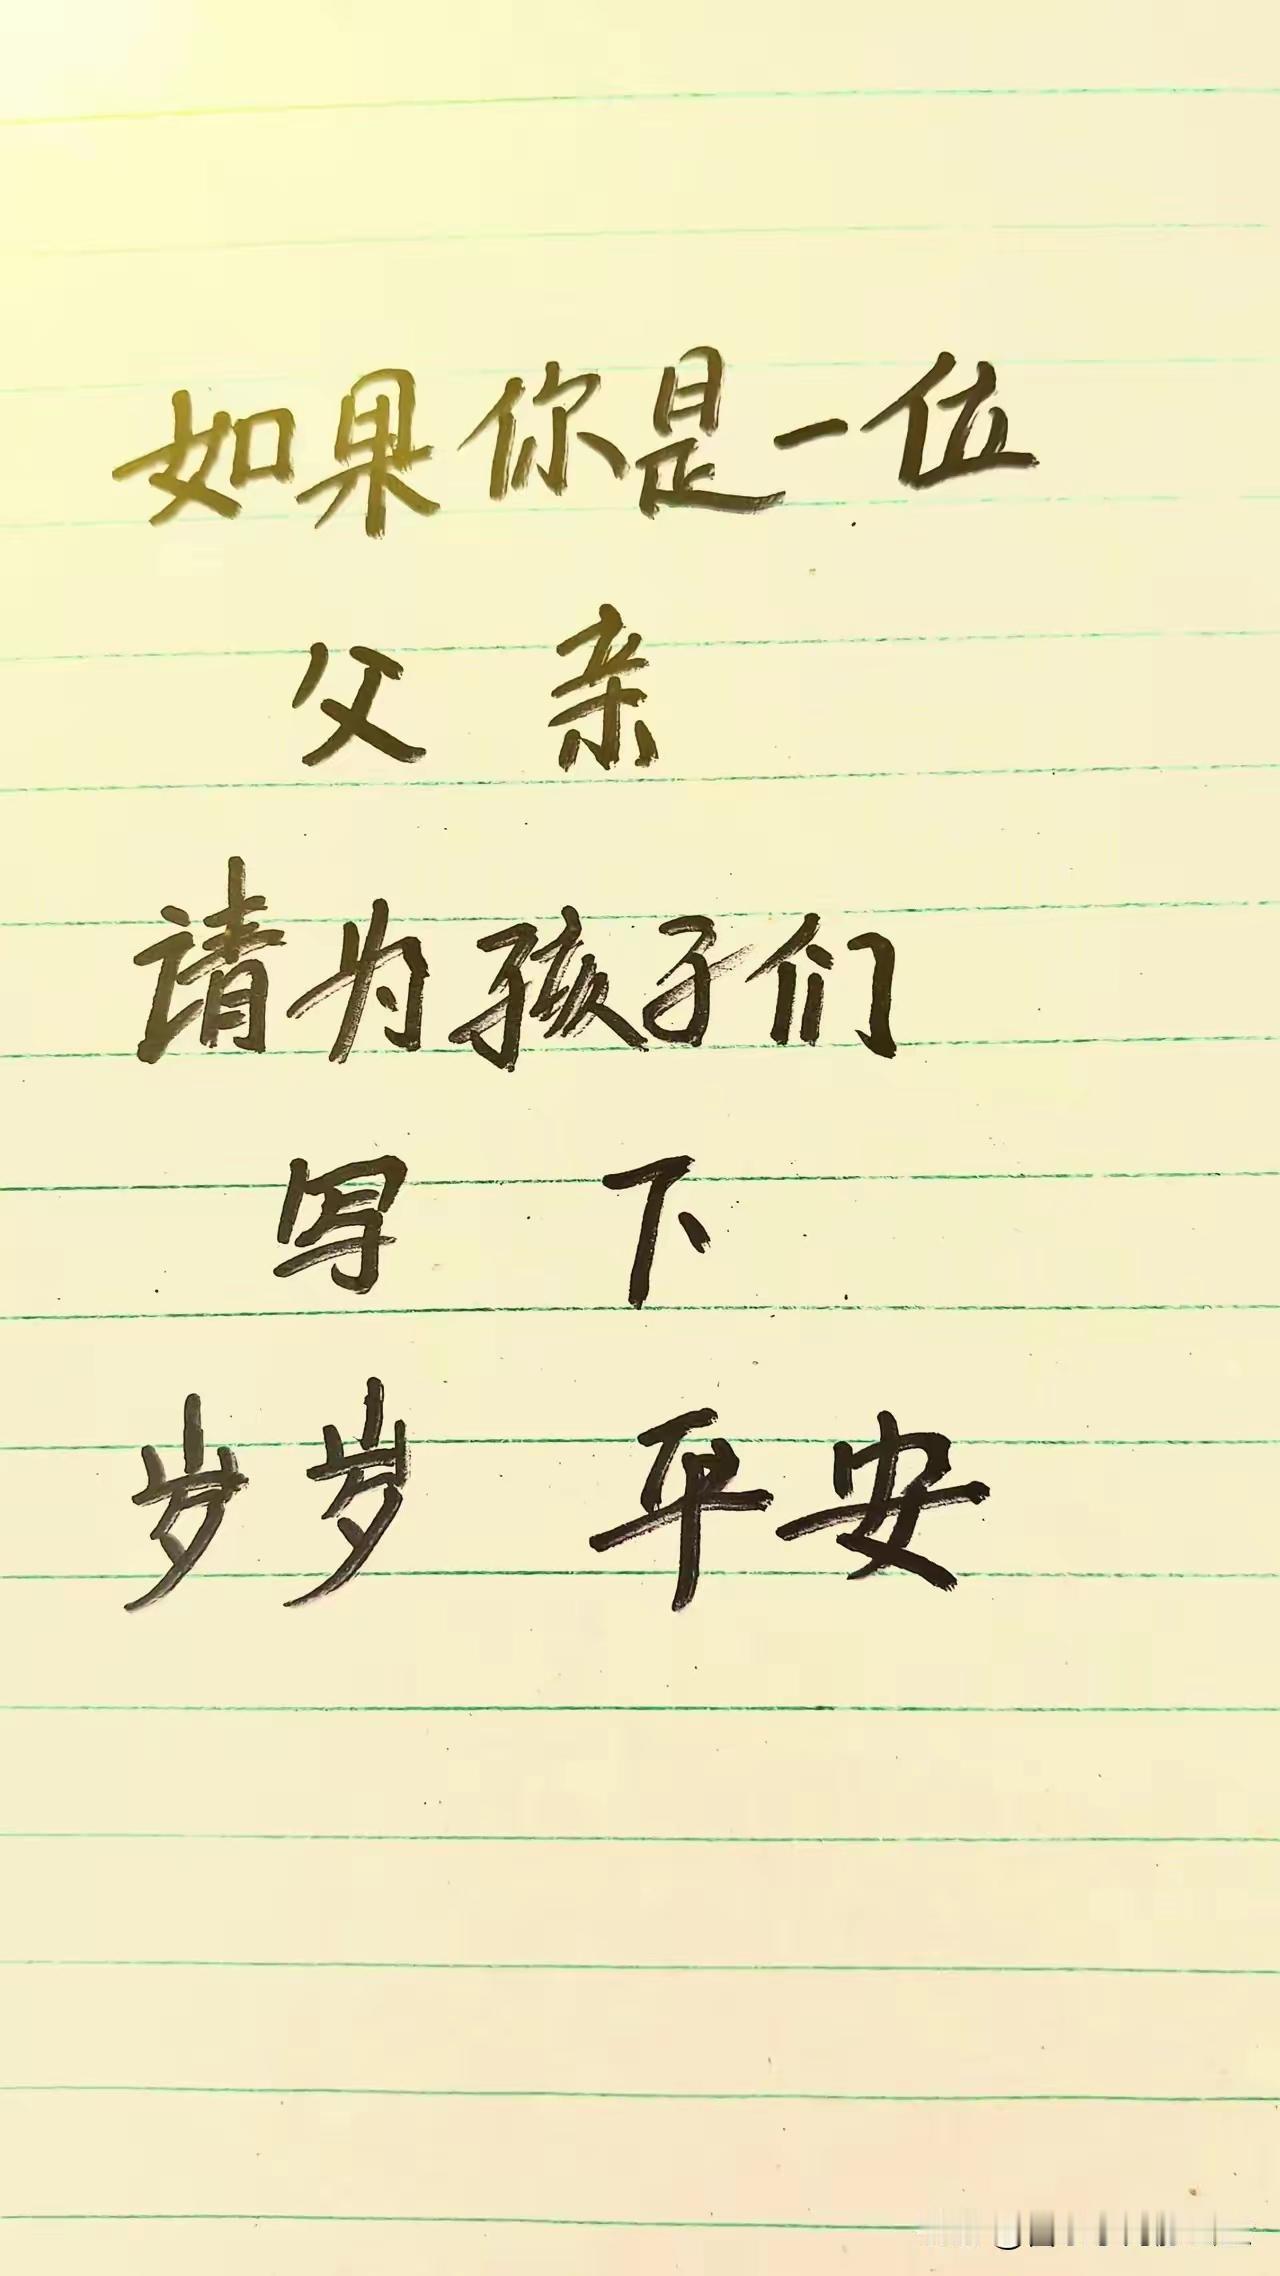 如果你是一位
父亲
请为孩子们
写下
岁岁平安